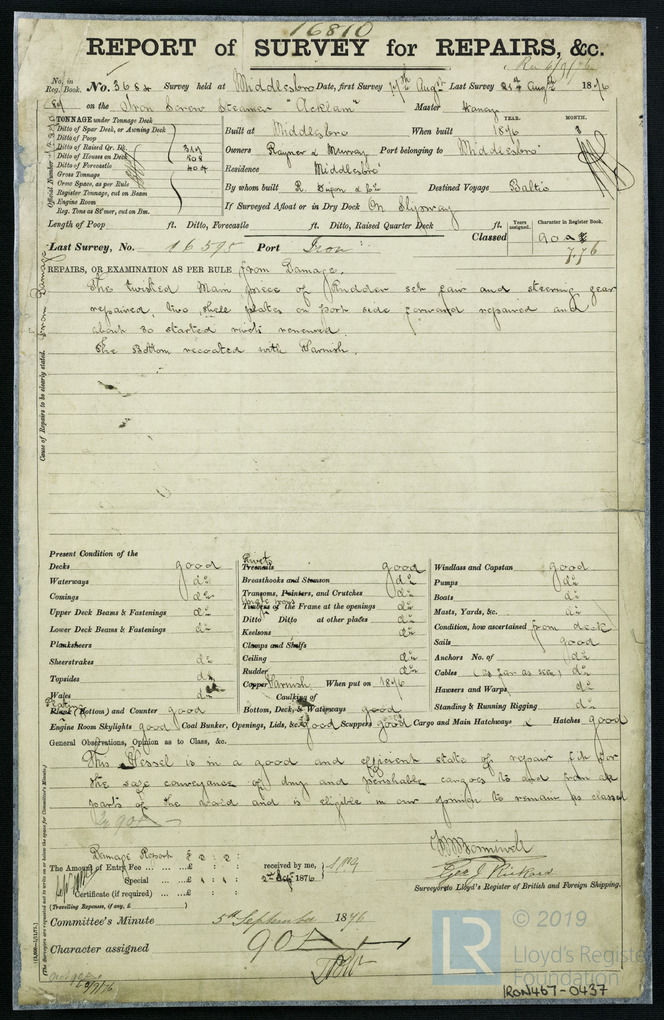 16810
REPORT of SURVEY for REPAIRS, &c.
No. in Reg. Book. No. 3684 Survey held at Middlesbro Date, first Survey 17th Augst Last Survey 21st Augst 1876
on the Iron Screw Steamer "Acklam" Master
TONNAGE under Tonnage Deck
Ditto of Spar Deck, or Awning Deck
Ditto of Poop
Ditto of Raised Qr. Dk.
Ditto of Houses on Deck
Ditto of Forecastle
Gross Tonnage
Crew Space, as per Rule
Register Tonnage, cut on Beam
Engine Room
Reg. Tons as St'mer, cut on Bm.
Official Number
YEAR. MONTH.
Built at Middlesbro When built 1876 3
Owners Rayner & Murray Port belonging to Middlesbro'
Residence Middlesbro'
By whom built R. Dixon & Co Destined Voyage Baltic
If Surveyed Afloat or in Dry Dock On Slipway
Length of Poop ft. Ditto, Forecastle ft. Ditto, Raised Quarter Deck ft.
Years assigned. Character in Register Book.
Last Survey, No. 16595 Port Iron Classed 90 A
7,76
Cause of Repairs to be clearly stated. From Damage
REPAIRS, OR EXAMINATION AS PER RULE from Damage.
The twisted Main piece of Rudder set fair and steering gear
repaired, two shell plates on port side forward repaired and
about 30 started rivets renewed.
The Bottom recoated with Varnish.
Present Condition of the
Decks good
Waterways do
Comings do
Upper Deck Beams & Fastenings do
Lower Deck Beams & Fastenings do
Planksheers
Sheerstrakes do
Topsides do
Wales do
Plating Plank (Bottom) and Counter good
Rivets Treenails good
Breasthooks and Stemson do
Transoms, Pointers, and Crutches do
Angle irons Timbers of the Frame at the openings do
Ditto Ditto at other places do
Keelsons do
Clamps and Shelfs
Ceiling do
Rudder do
Copper Varnish When put on 1876
Caulking of
Bottom, Deck, & Waterways good
Windlass and Capstan good
Pumps do
Boats do
Masts, Yards, &c. do
Condition, how ascertained from deck
Sails good
Anchors No. of do
Cables (as far as seen) do
Hawsers and Warps do
Standing & Running Rigging do
Engine Room Skylights good Coal Bunker, Openings, Lids, &c. good Scuppers good Cargo and Main Hatchways & Hatches good
General Observations, Opinion as to Class, &c.
This Vessel is in a good and efficient state of repair fit for
the safe conveyance of dry and perishable cargoes to and from all
parts of the world and is eligible in our opinion to remain as classed
90A
Damage Report £ 2 : 2 :
The Amount of Entry Fee ... ... £ : : received by me,
Special ... ... £ 1 : 1 : 2nd Sep 1876
Certificate (if required) ... £ : :
(Travelling Expenses, if any, £ )
Geo J Rickard
Surveyors to Lloyd's Register of British and Foreign Shipping.
Committee's Minute 5th September 1876
Character assigned 90A
(The Surveyors are requested not to write on or below the space for Committee's Minute.)
© 2019
LR Lloyd's Register
Foundation
IRON467-0437